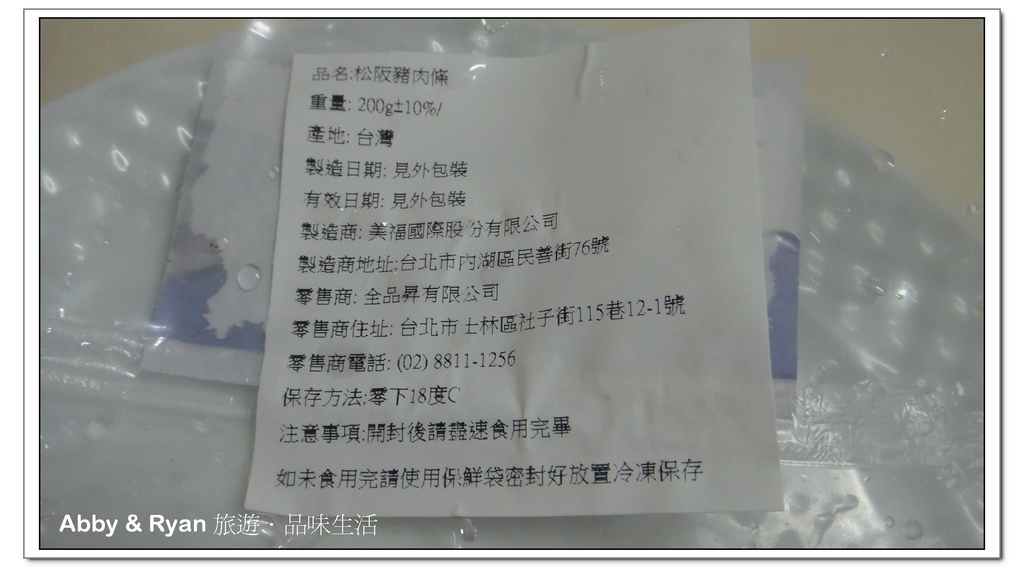 品名:松阪豬肉條
重量: 200g±10%/
產地: 台灣
製造日期: 見外包裝
有效日期: 見外包裝
製造商: 美福國際股份有限公司
製造商地址:台北市內湖區民善街76號
零售商: 全品昇有限公司
零售商住址: 台北市士林區社子街115巷12-1號
零售商電話: (02) 8811-1256
保存方法:零下18度C
注意事項:開封後請盡速食用完畢
如未食用完請使用保鮮袋密封好放置冷凍保存
Abby & Ryan 旅遊‧品味生活